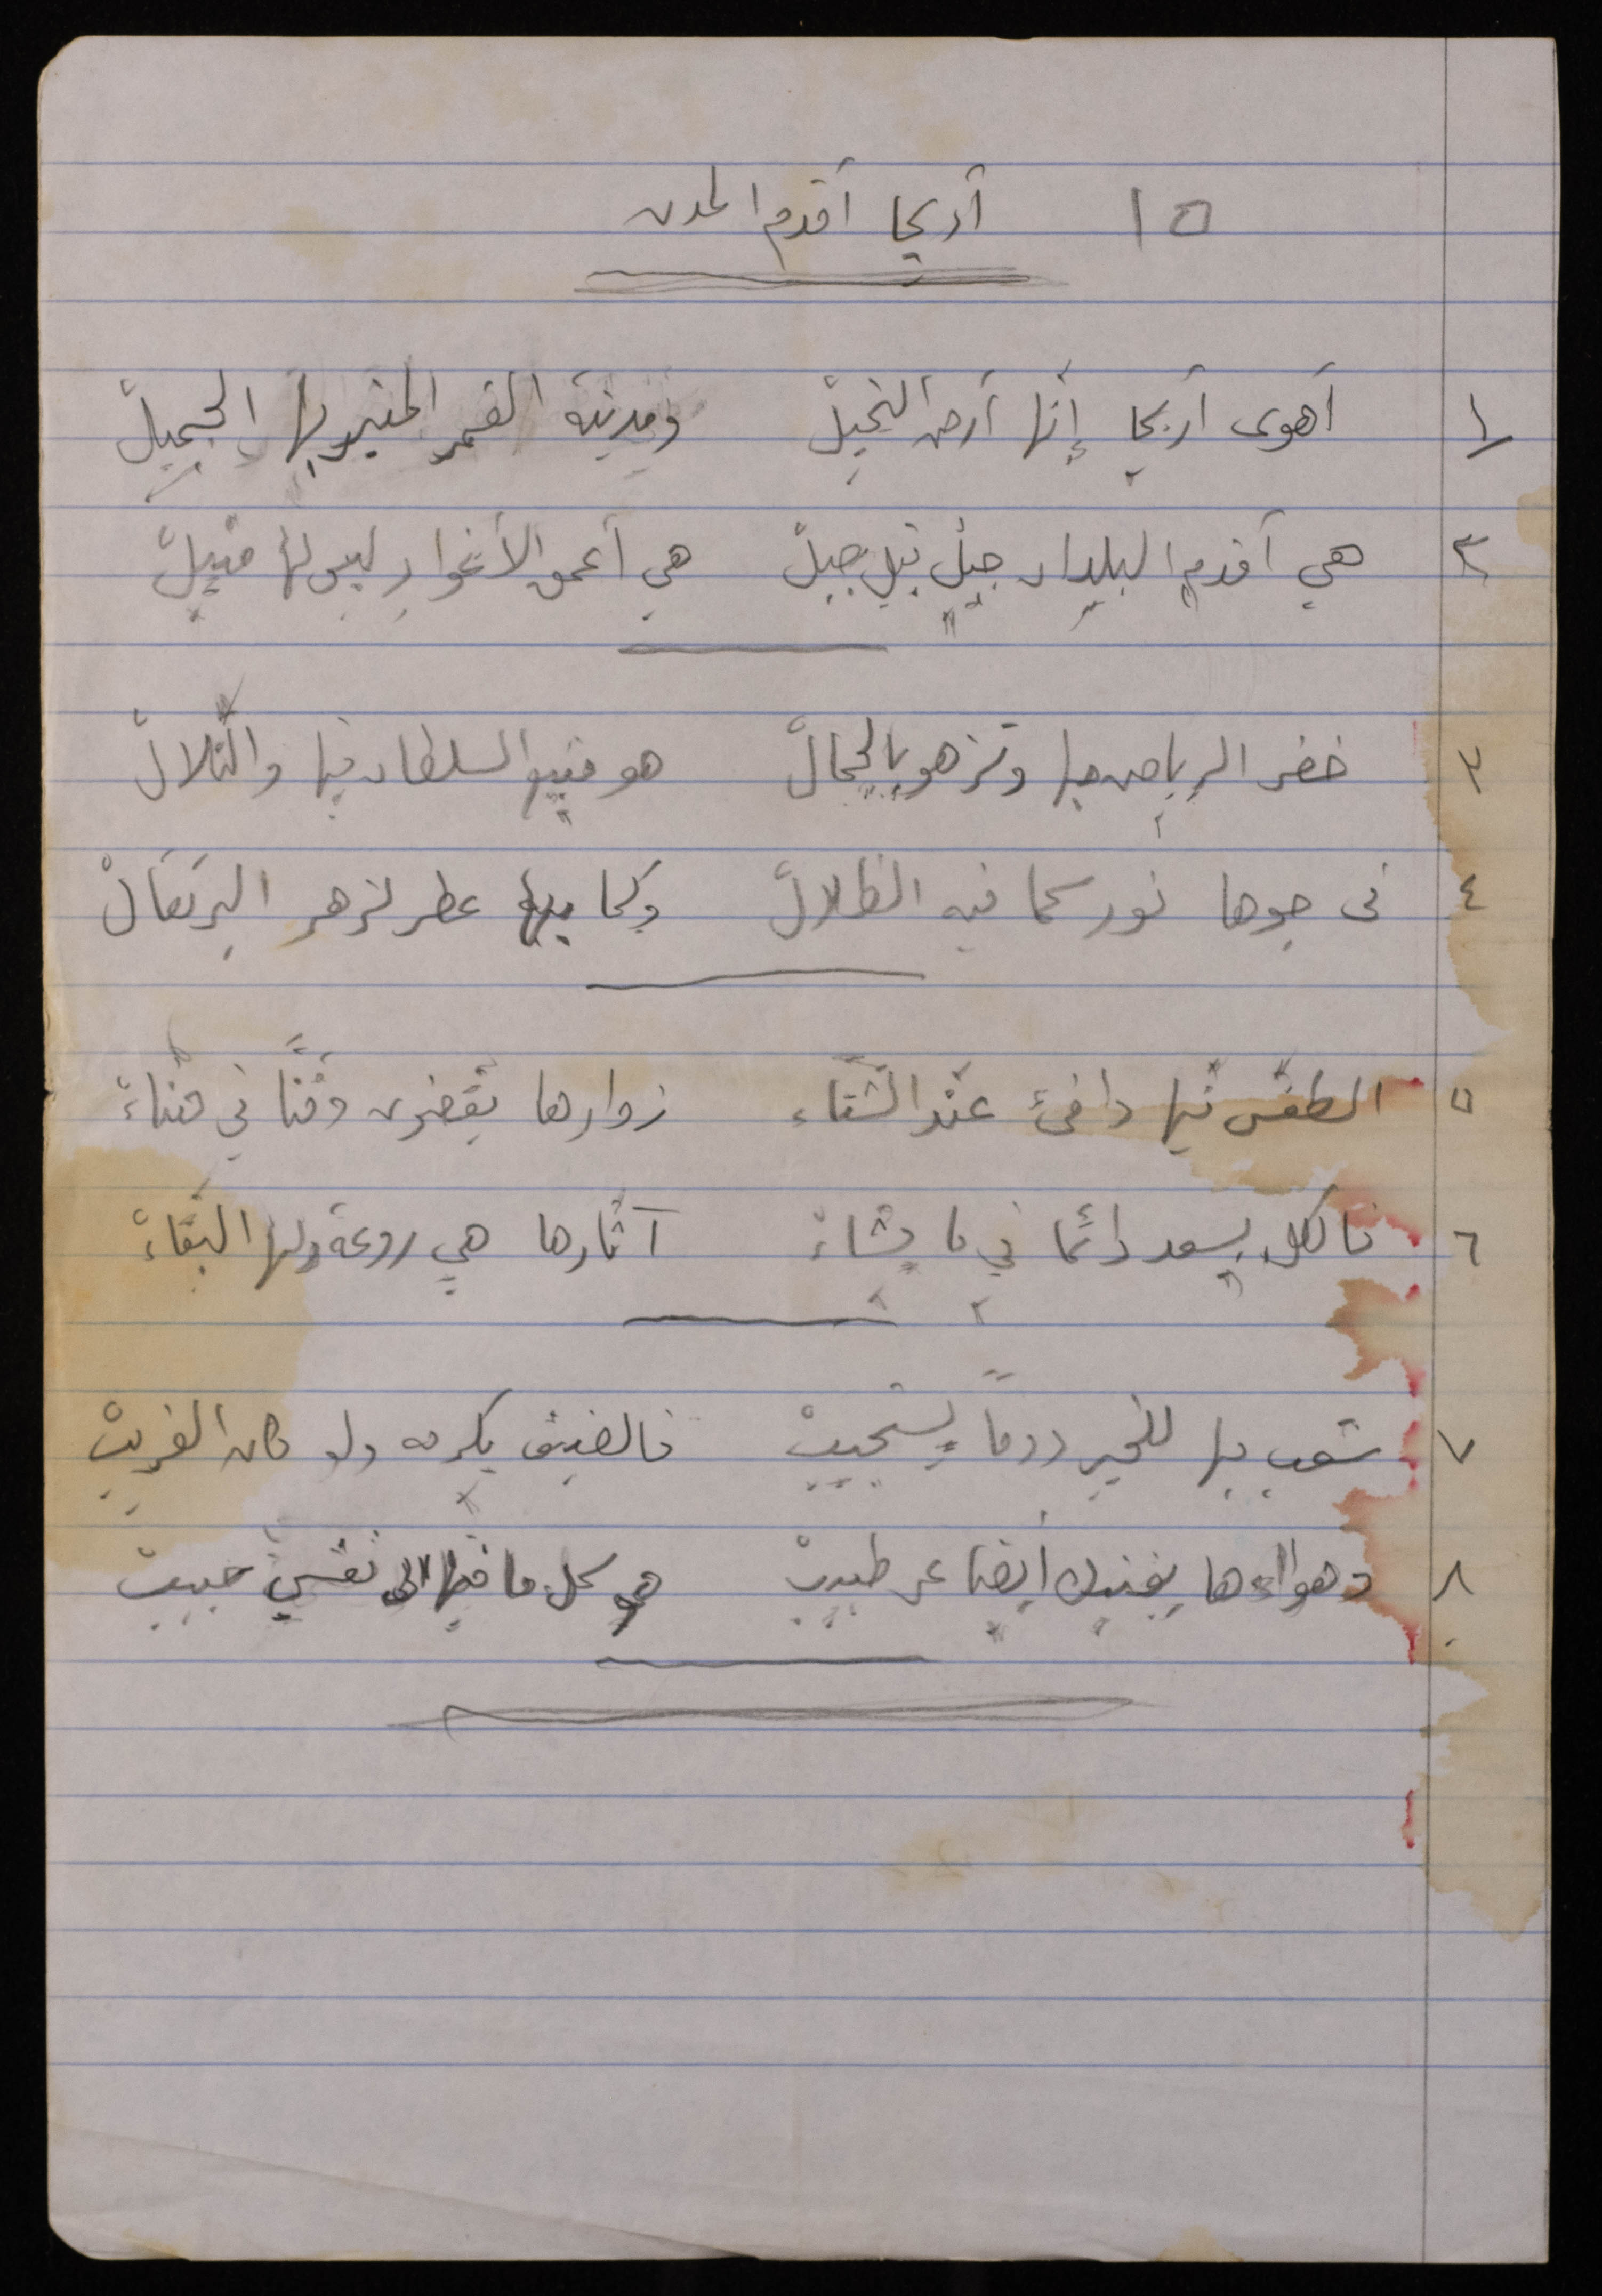 ١٥ أريحا أقدم المدن
١ أهوى أريحا إنها أرض النخيلْ ومدينة القمر المنير بها الجميلْ
٢ هي أقدم البلدان جيلٌ قبل جيلْ هي أعمق الأغوار ليس لها مثيلْ
٣ خضر الرياض بها وتزهو بالجمالْ هو السلطان فيها والتّلالْ
٤ في جوها نور سما فيه الظلالْ وكما بها عطر لزهر البرتقالْ
٥ الطقس فيها دافئ عند الشّتاء زوارها يقضون وقتًا في هناءْ
٦ فالكل يسعد دائمًا في ما يشاءْ آثارها هي روعة ولها البقاءْ
٧ شعب بها للخير دومًا يستجيبْ فالضيف يكرمه ولو كان الغريبْ
٨ وهواءها يغنيك أيضا عن طبيبْ هي كل ما فيها الى نفسي حبيبْ